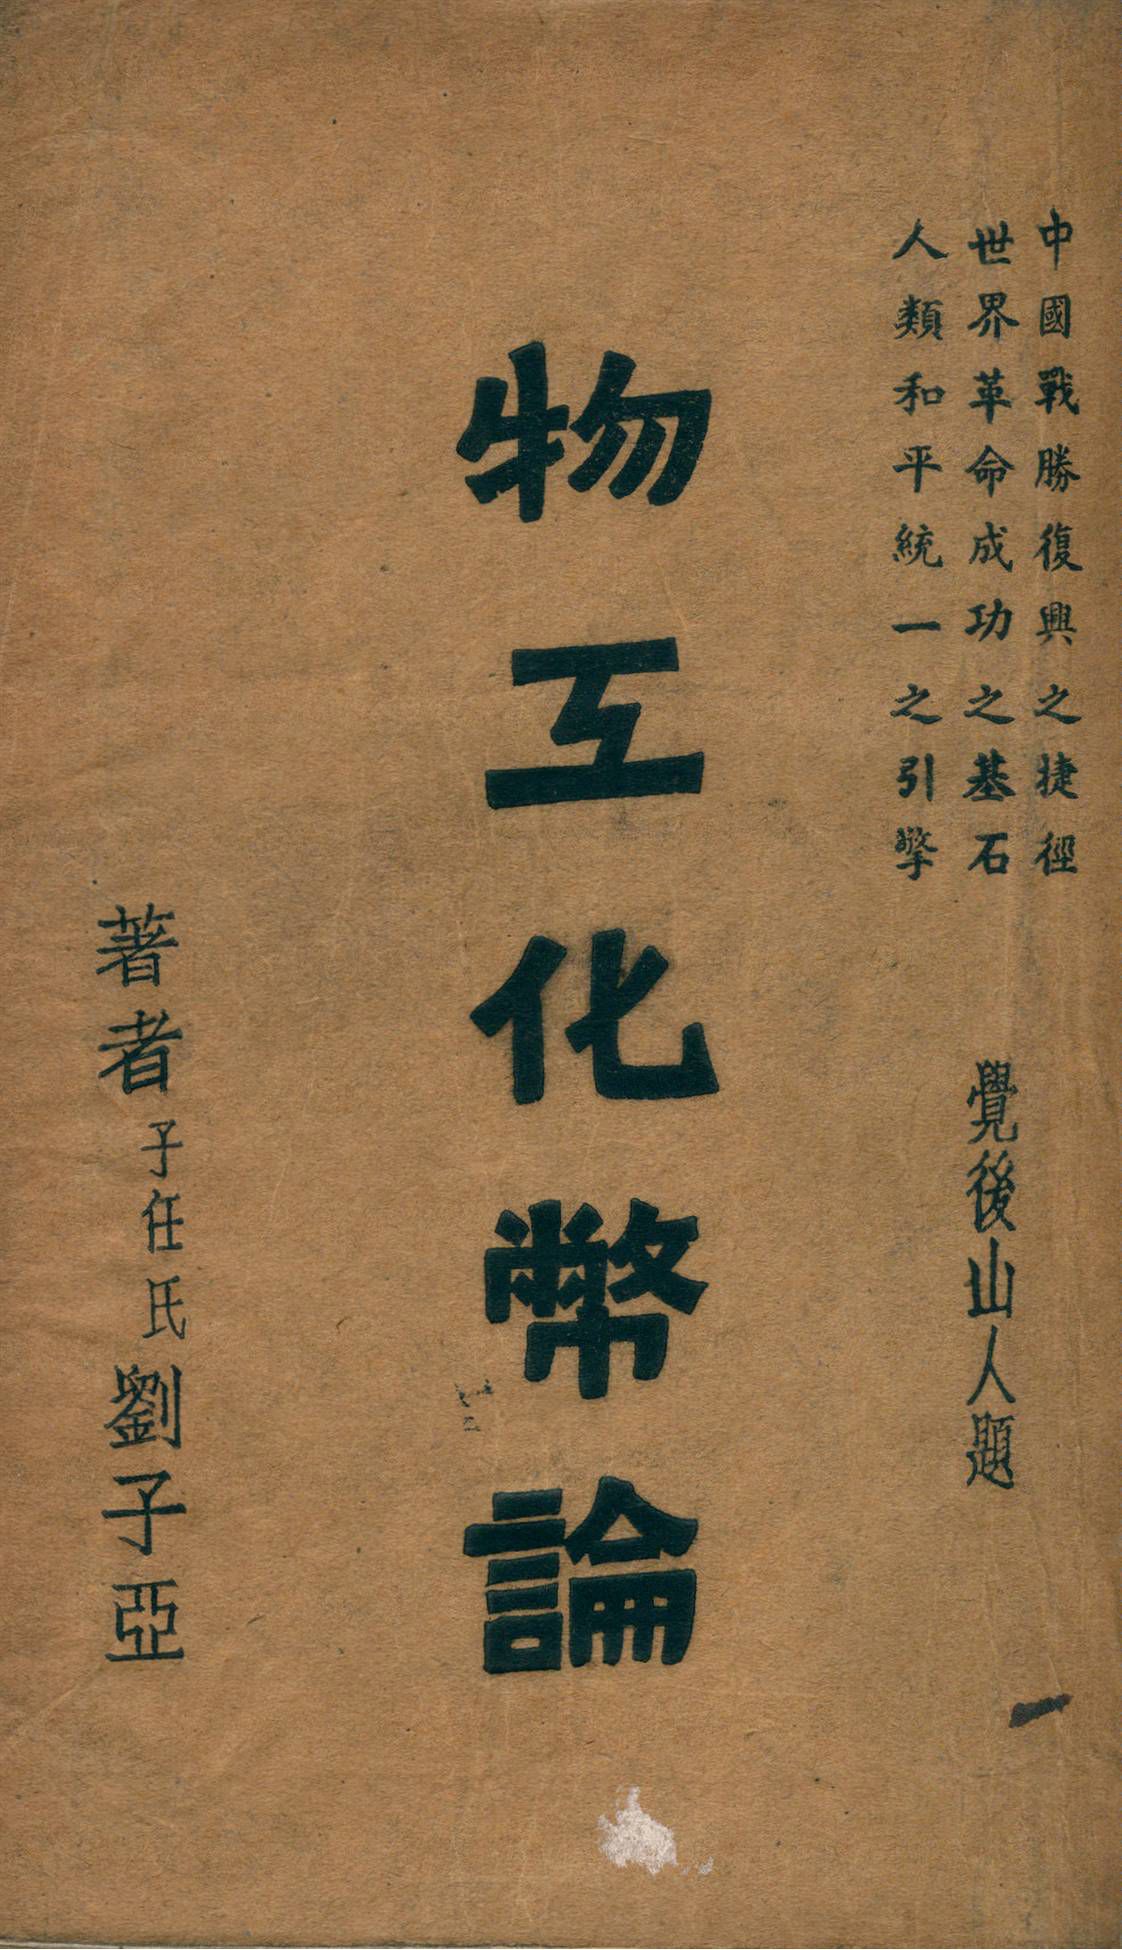 中國戰勝復興之捷徑
世界革命成功之基石
人類和平統一之引擎
覺後山人題
物工化幣論
著者子任氏劉子亞